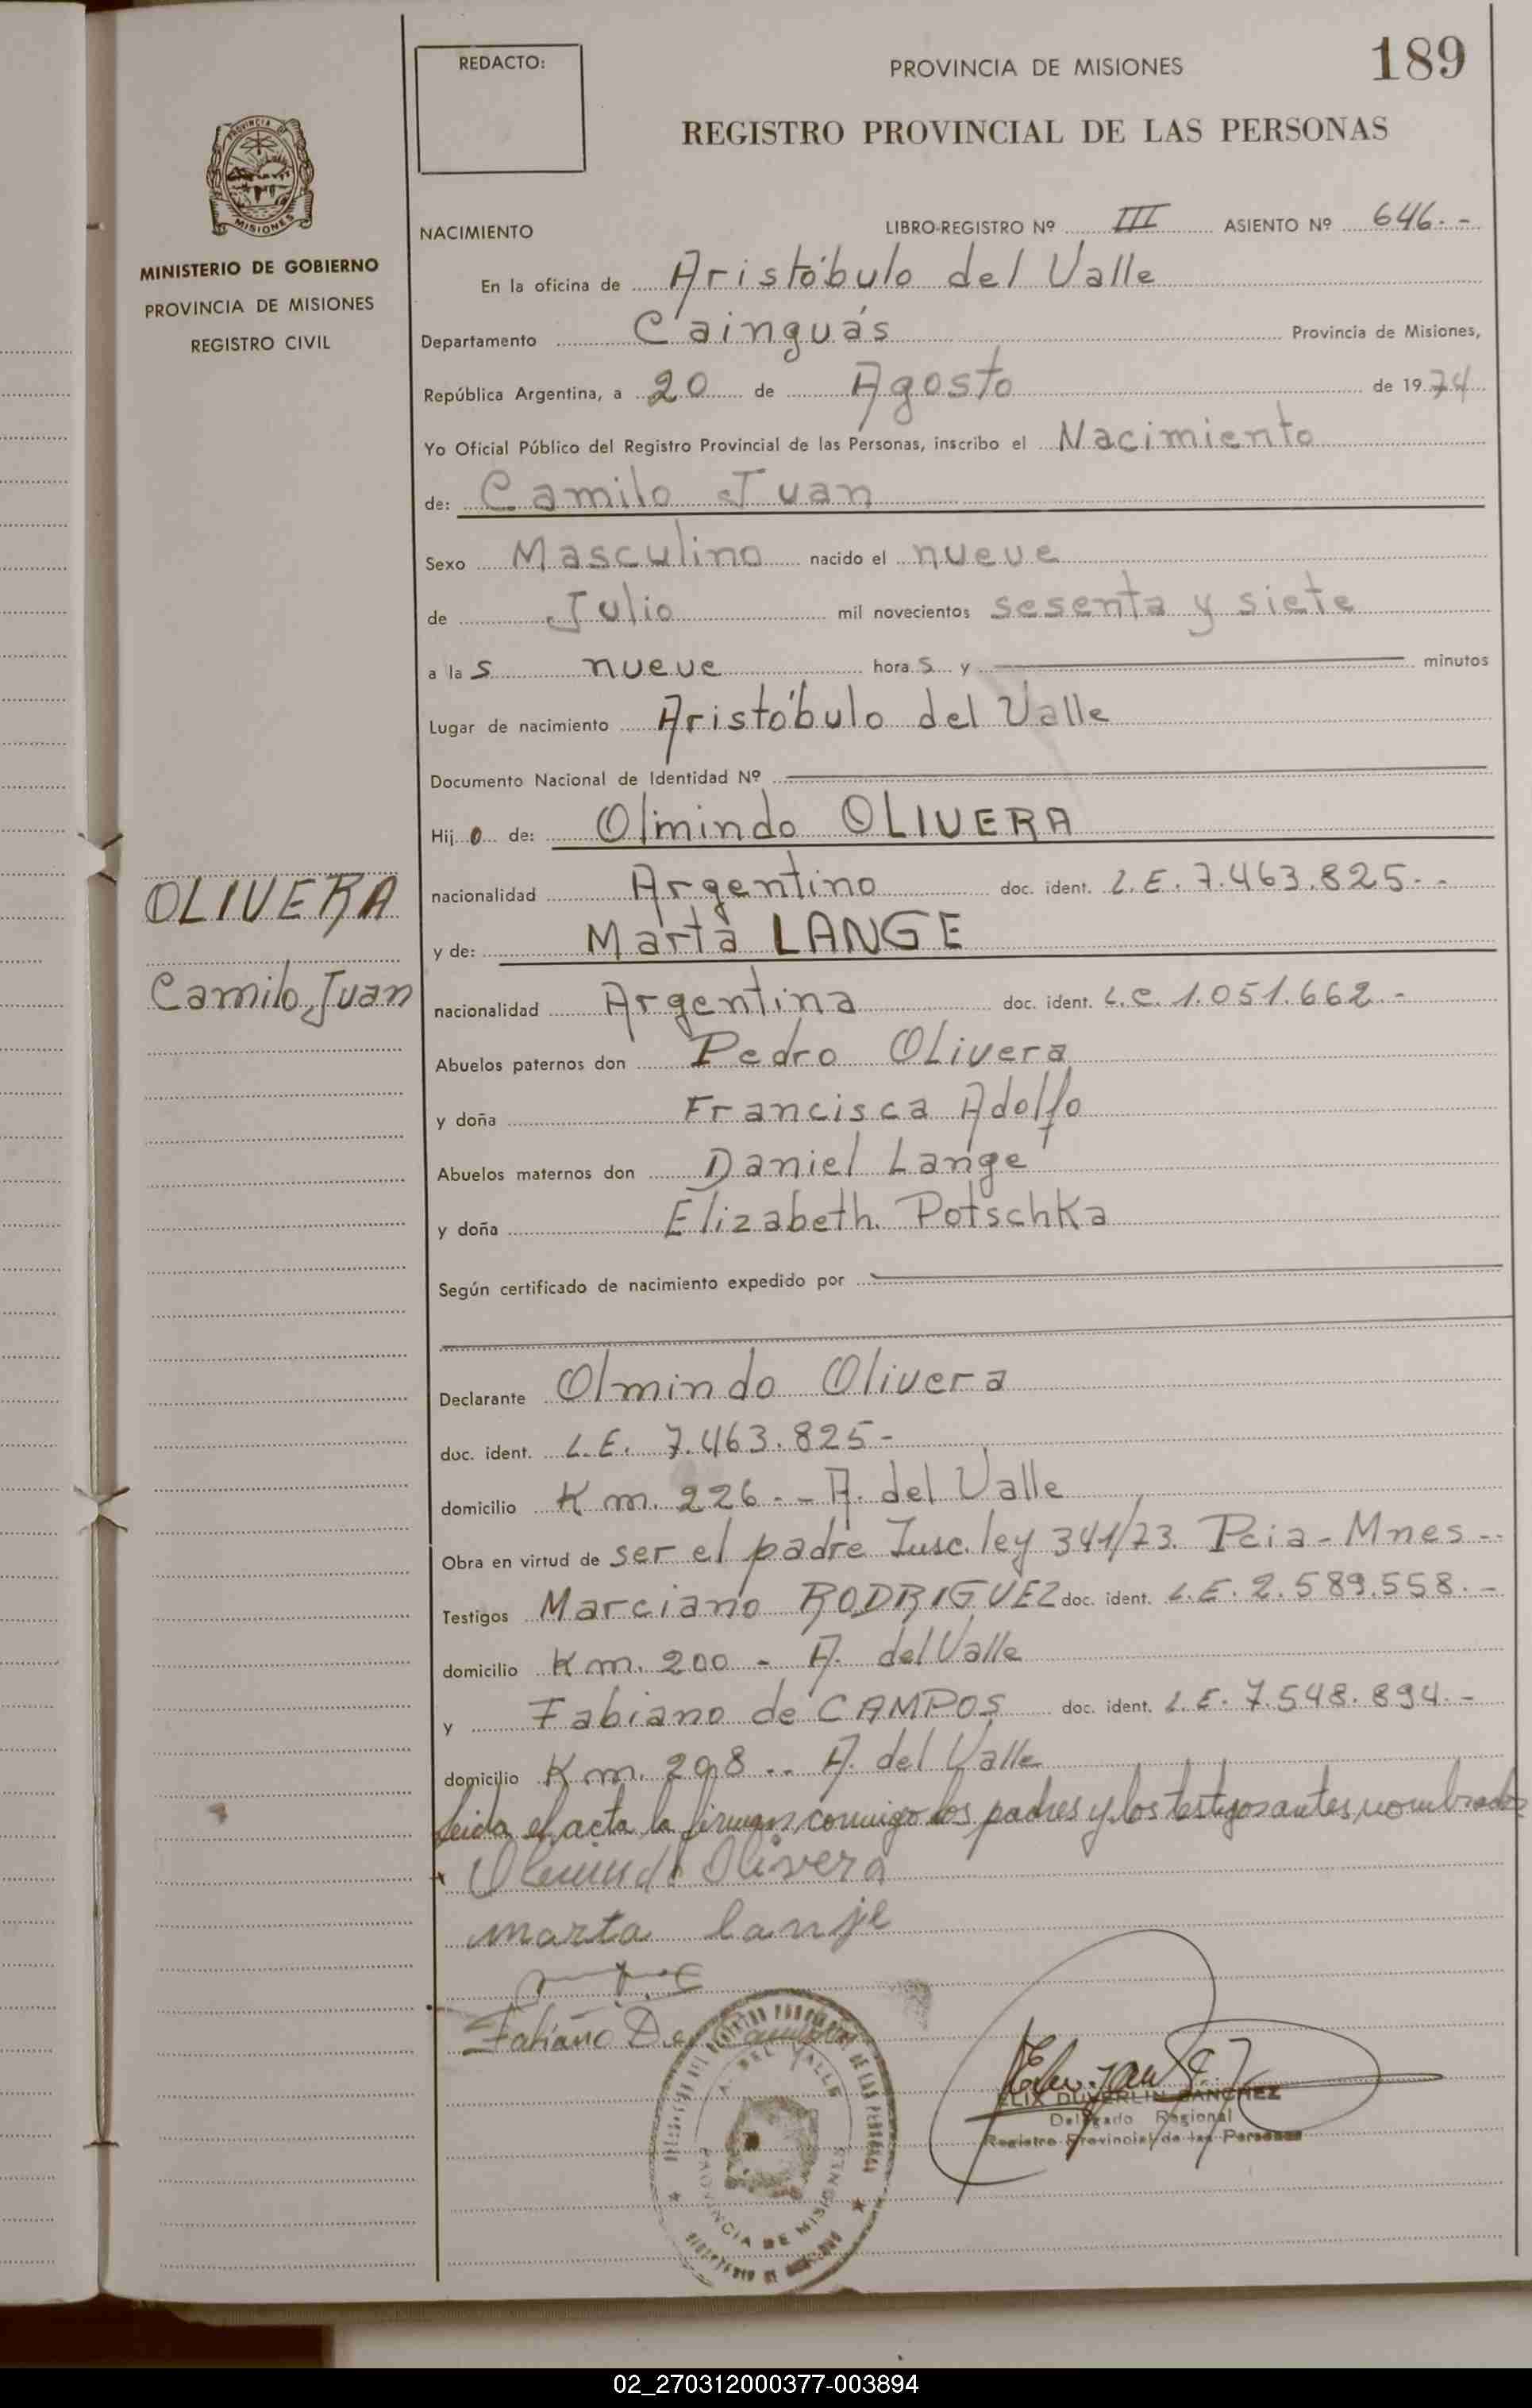 REDACTO:
PROVINCIA DE MISIONES
189
REGISTRO PROVINCIAL DE LAS PERSONAS
PROVINCIA DE
MISIONES
MINISTERIO DE GOBIERNO
PROVINCIA DE MISIONES
REGISTRO CIVIL
NACIMIENTO LIBRO-REGISTRO Nº III ASIENTO Nº 646.-
En la oficina de Aristóbulo del Valle
Departamento Cainguás Provincia de Misiones,
República Argentina, a 20 de Agosto de 1974
Yo Oficial Público del Registro Provincial de las Personas, inscribo el Nacimiento
de: Camilo Juan
Sexo Masculino nacido el nueve
de Julio mil novecientos sesenta y siete
a las nueve horas y minutos
Lugar de nacimiento Aristóbulo del Valle
Documento Nacional de Identidad Nº
Hijo de: Olmindo OLIVERA
nacionalidad Argentino doc. ident. L.E. 7.463.825.-
y de: Marta LANGE
nacionalidad Argentina doc. ident. L.C. 1.051.662.-
Abuelos paternos don Pedro Olivera
y doña Francisca Adolfo
Abuelos maternos don Daniel Lange
y doña Elizabeth Potschka
Según certificado de nacimiento expedido por
OLIVERA
Camilo Juan
Declarante Olmindo Olivera
doc. ident. L.E. 7.463.825-
domicilio Km. 226.-- A. del Valle
Obra en virtud de ser el padre Insc. ley 341/73. Pcia-Mnes--
Testigos Marciano RODRIGUEZ doc. ident. L.E. 2.589.558.-
domicilio Km. 200 - A. del Valle
y Fabiano de CAMPOS doc. ident. L.E. 7.548.894.-
domicilio Km. 208.. A. del Valle
Leida el acta la firman conmigo los padres y los testigos antes nombrados
Olmindo Olivera
marta lanje
Fabiano De
A. DEL VALLE
PROVINCIA DE MISIONES
DUVERLIN SANCHEZ
Delegado Regional
Registro Provincial de las Personas
02_270312000377-003894